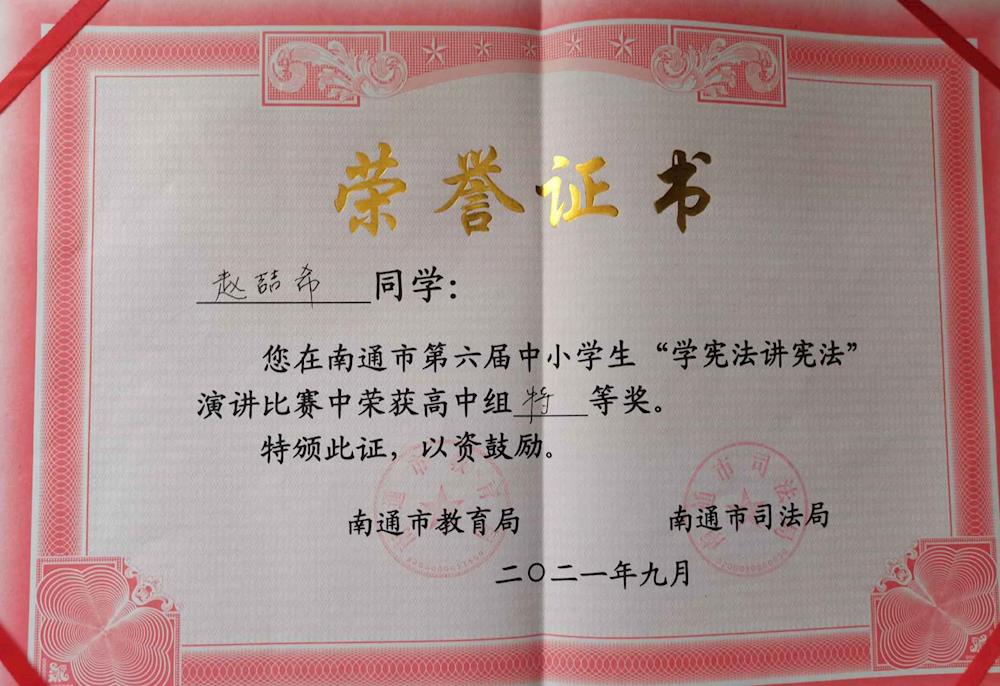 荣誉证书
赵喆希 同学：
您在南通市第六届中小学生“学宪法讲宪法”
演讲比赛中荣获高中组特等奖。
特颁此证，以资鼓励。
南通市教育局 南通市司法局
二〇二一年九月